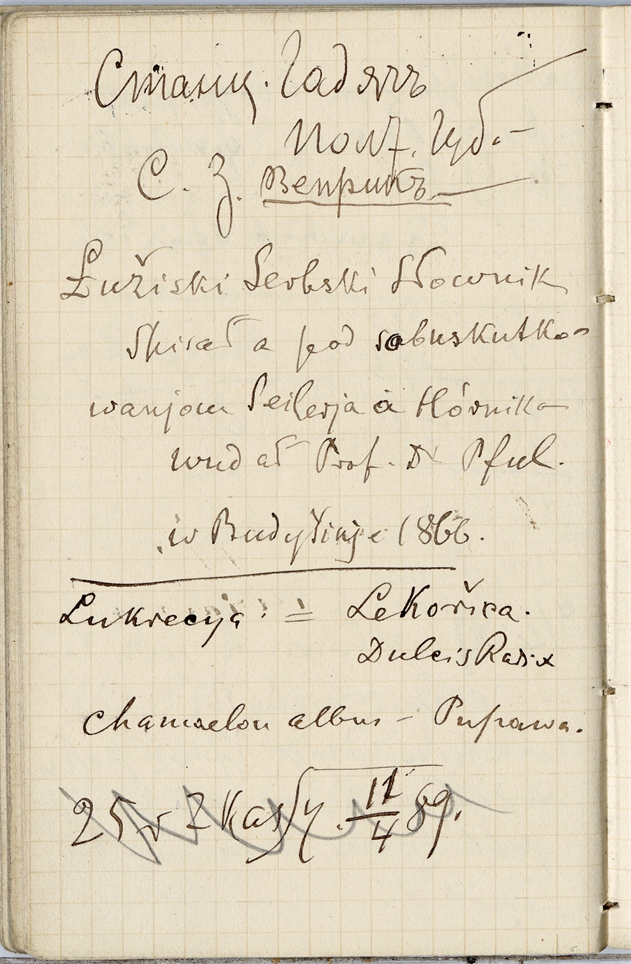 Станц. Гадячъ
Полт. Губ.
С. З. Веприкъ
Łužiski Serbski Słownik
Spisał a pod sobuskutko-
wanjom Seilerja a Hórnika
wudał Prof. Dr Pful.
w Budyšinje 1866.
Lukrecya = Lekořica.
Dulcis Radix
Chamaelon albus – Pupawa.
25 r z Kassy. 11/4 89.